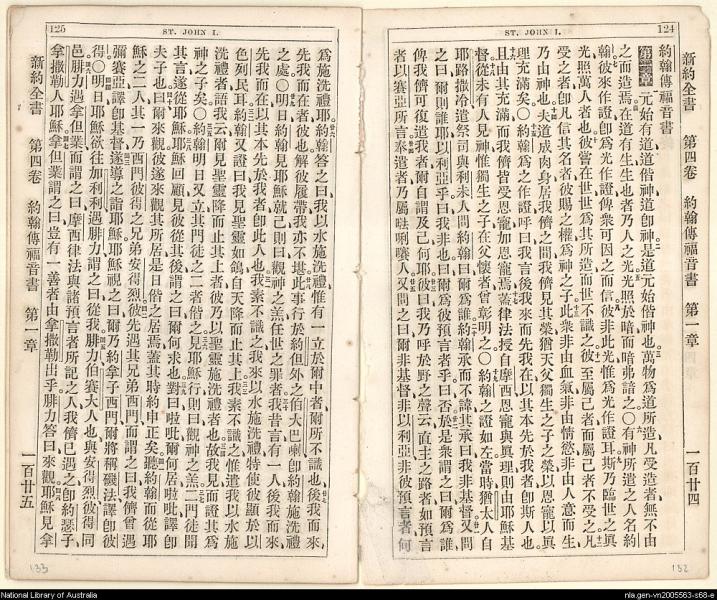 124
ST. JOHN I.
新約全書 第四卷 約翰傳福音書 第一章 一百廿四
約翰傳福音書
第一章 元始有道道偕神道即神是道元始偕神也萬物為道所造凡受造者無不由
之而造焉在道有生生也者乃人之光光照於暗而暗弗識之〇有神所遣之人名約
翰彼來作證即為光作證俾衆可因之而信彼非此光惟為光作證耳斯乃臨世之眞
光照萬人者也彼嘗在世世為其所造而世不識之彼至屬己者而屬己者不受之凡
受之者即凡信其名者彼賜之權為神之子此衆非由血氣非由情慾非由人意而生
乃由神也夫道成肉身居我儕之間我儕見其榮猶天父獨生之子之榮以恩寵以眞
理充滿矣〇約翰為之作證呼曰我言後我來而先我在以其本先於我者即斯人也
且由其充滿而我儕皆受恩寵加恩寵焉蓋律法授自摩西恩寵與眞理則由耶穌基
督從未有人見神惟獨生之子在父懷者曾彰明之〇約翰之證如左當時猶太人自
耶路撒冷遣祭司與利未人問約翰曰爾為誰約翰承而不諱其承曰我非基督又問
之曰爾則誰耶以利亞乎曰我非也曰爾為彼預言者乎曰否於是衆謂之曰爾為誰
俾我儕可復遣我者爾自謂及己何耶彼曰我乃呼於野之聲云直主之路者如預言
者以賽亞所言奉遣者乃屬㕸唎嚷人又問之曰爾非基督非以利亞非彼預言者何
132
125
ST. JOHN I.
為施洗禮耶約翰答之曰我以水施洗禮惟有一立於爾中者爾所不識也後我而來
先我而在者彼也解彼履帶我亦不堪此事行於約但外之伯大巴喇即約翰施洗禮
之處〇明日約翰見耶穌就己則曰觀神之羔任世之罪者我昔言有一人後我而來
先我而在以其本先於我者即此人也我素不識之我來以水施洗禮特使彼顯於以
色列民耳約翰又證曰我見聖靈如鴿自天降而止其上我素不識之惟遣我以水施
洗禮者語我云爾見聖靈降而止其上者彼乃以聖靈施洗禮者也故我見而證其為
神之子矣〇約翰明日又立其門徒之二者偕之見耶穌行則曰觀神之羔二門徒聞
其言遂從耶穌耶穌回顧見彼從其後謂之曰爾何求也對曰啦吡爾何居啦吡譯即
夫子也曰爾來觀彼遂來觀其所居是日偕之居焉蓋其時約申正矣聽約翰而從耶
穌之二人其一乃西門彼得之兄弟安得烈彼先遇其兄弟西門而謂之曰我儕曾遇
彌賽亞譯即基督遂導之詣耶穌耶穌視之曰爾乃約拿子西門爾將稱磯法譯即彼
得〇明日耶穌欲往加利利遇腓力謂之曰從我腓力伯賽大人也與安得烈彼得同
邑腓力遇拿但業而謂之曰摩西律法與諸預言者所記之人我儕已遇之即約瑟子
拿撒勒人耶穌拿但業謂之曰豈有一善者由拿撒勒出乎腓力答曰來觀耶穌見拿
新約全書 第四卷 約翰傳福音書 第一章 一百廿五
133
National Library of Australia
nla.gen-vn2005563-s68-e